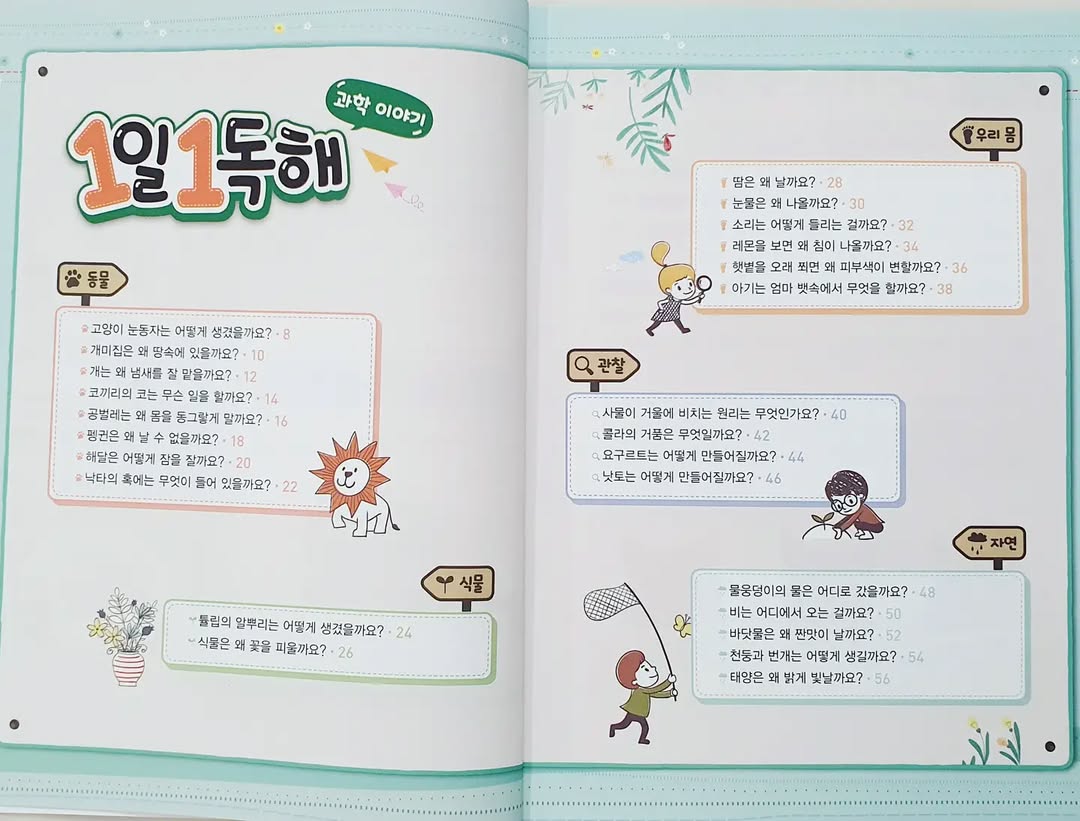 과학 이야기
1일 1독해
동물
고양이 눈동자는 어떻게 생겼을까요? · 8
개미집은 왜 땅속에 있을까요? · 10
개는 왜 냄새를 잘 맡을까요? · 12
코끼리의 코는 무슨 일을 할까요? · 14
공벌레는 왜 몸을 동그랗게 말까요? · 16
펭귄은 왜 날 수 없을까요? · 18
해달은 어떻게 잠을 잘까요? · 20
낙타의 혹에는 무엇이 들어 있을까요? · 22
식물
튤립의 알뿌리는 어떻게 생겼을까요? · 24
식물은 왜 꽃을 피울까요? · 26
우리 몸
땀은 왜 날까요? · 28
눈물은 왜 나올까요? · 30
소리는 어떻게 들리는 걸까요? · 32
레몬을 보면 왜 침이 나올까요? · 34
햇볕을 오래 쬐면 왜 피부색이 변할까요? · 36
아기는 엄마 뱃속에서 무엇을 할까요? · 38
관찰
사물이 거울에 비치는 원리는 무엇인가요? · 40
콜라의 거품은 무엇일까요? · 42
요구르트는 어떻게 만들어질까요? · 44
낫토는 어떻게 만들어질까요? · 46
자연
물웅덩이의 물은 어디로 갔을까요? · 48
비는 어디에서 오는 걸까요? · 50
바닷물은 왜 짠맛이 날까요? · 52
천둥과 번개는 어떻게 생길까요? · 54
태양은 왜 밝게 빛날까요? · 56